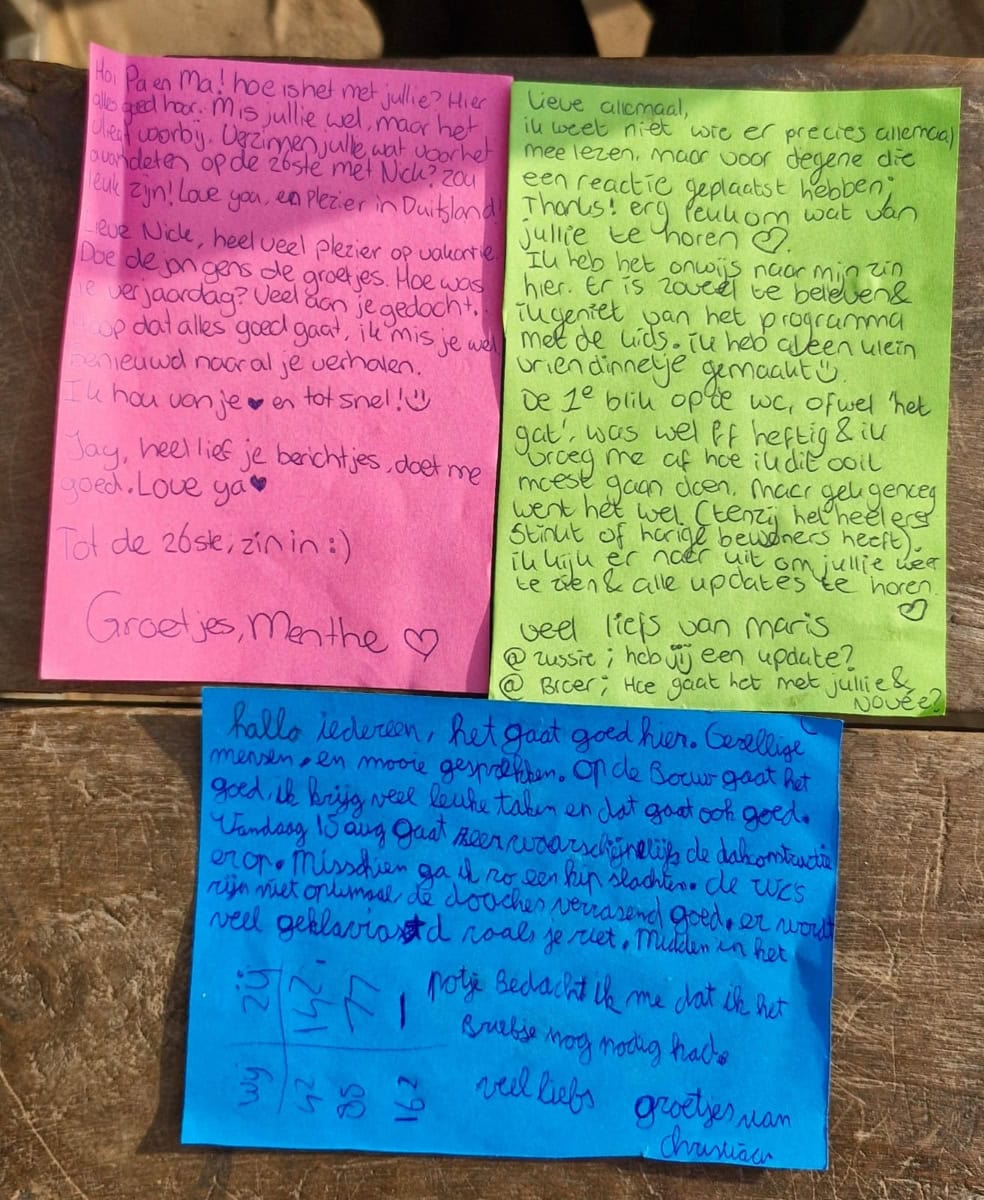 Hoi Pa en Ma! hoe is het met jullie? Hier
alles goed hoor. Mis jullie wel, maar het
vliegt voorbij. Verzinnen jullie wat voor het
avondeten op de 26ste met Nick? Zou
leuk zijn! Love you, en Plezier in Duitsland!
Lieve Nick, heel veel plezier op vakantie.
Doe de jongens de groetjes. Hoe was
je verjaardag? Veel aan je gedacht.
Hoop dat alles goed gaat, ik mis je wel.
Benieuwd naar al je verhalen.
Ik hou van je ♥ en tot snel! ☺
Jay, heel lief je berichtjes, doet me
goed. Love ya ♥
Tot de 26ste, zin in :)
Groetjes, Menthe ♡
Lieve allemaal,
ik weet niet wie er precies allemaal
mee lezen. Maar voor degene die
een reactie geplaatst hebben;
Thanks! erg leuk om wat van
jullie te horen ♡.
Ik heb het onwijs naar mijn zin
hier. Er is zoveel te beleven &
ik geniet van het programma
met de kids. ik heb al een klein
vriendinnetje gemaakt ☺.
De 1e blik op de wc, ofwel 'het
gat', was wel ff heftig & ik
vroeg me af hoe ik dit ooit
moest gaan doen. Maar gelukgenoeg
went het wel (tenzij het heel erg
stinkt of harige bewoners heeft).
ik kijk er naar uit om jullie weer
te zien & alle updates te horen.
♡
veel liefs van Maris
@ zussie; heb jij een update?
@ Broer; Hoe gaat het met jullie &
Novee?
hallo iedereen, het gaat goed hier. Gezellige
mensen, en mooie gesprekken. Op de Bouw gaat het
goed. ik krijg veel leuke taken en dat gaat ook goed.
Vandaag 15 aug gaat zeer waarschijnelijk de dakconstructie
erop. Misschien ga ik zo een kip slachten. de WCs
zijn niet optimaal, de douches verrasend goed. er wordt
veel geklaviased zoals je ziet. Midden in het
potje Bedacht ik me dat ik het
Briefje nog nodig had.
wij zij
42 142
85 77
162 1
veel liefs groetjes van